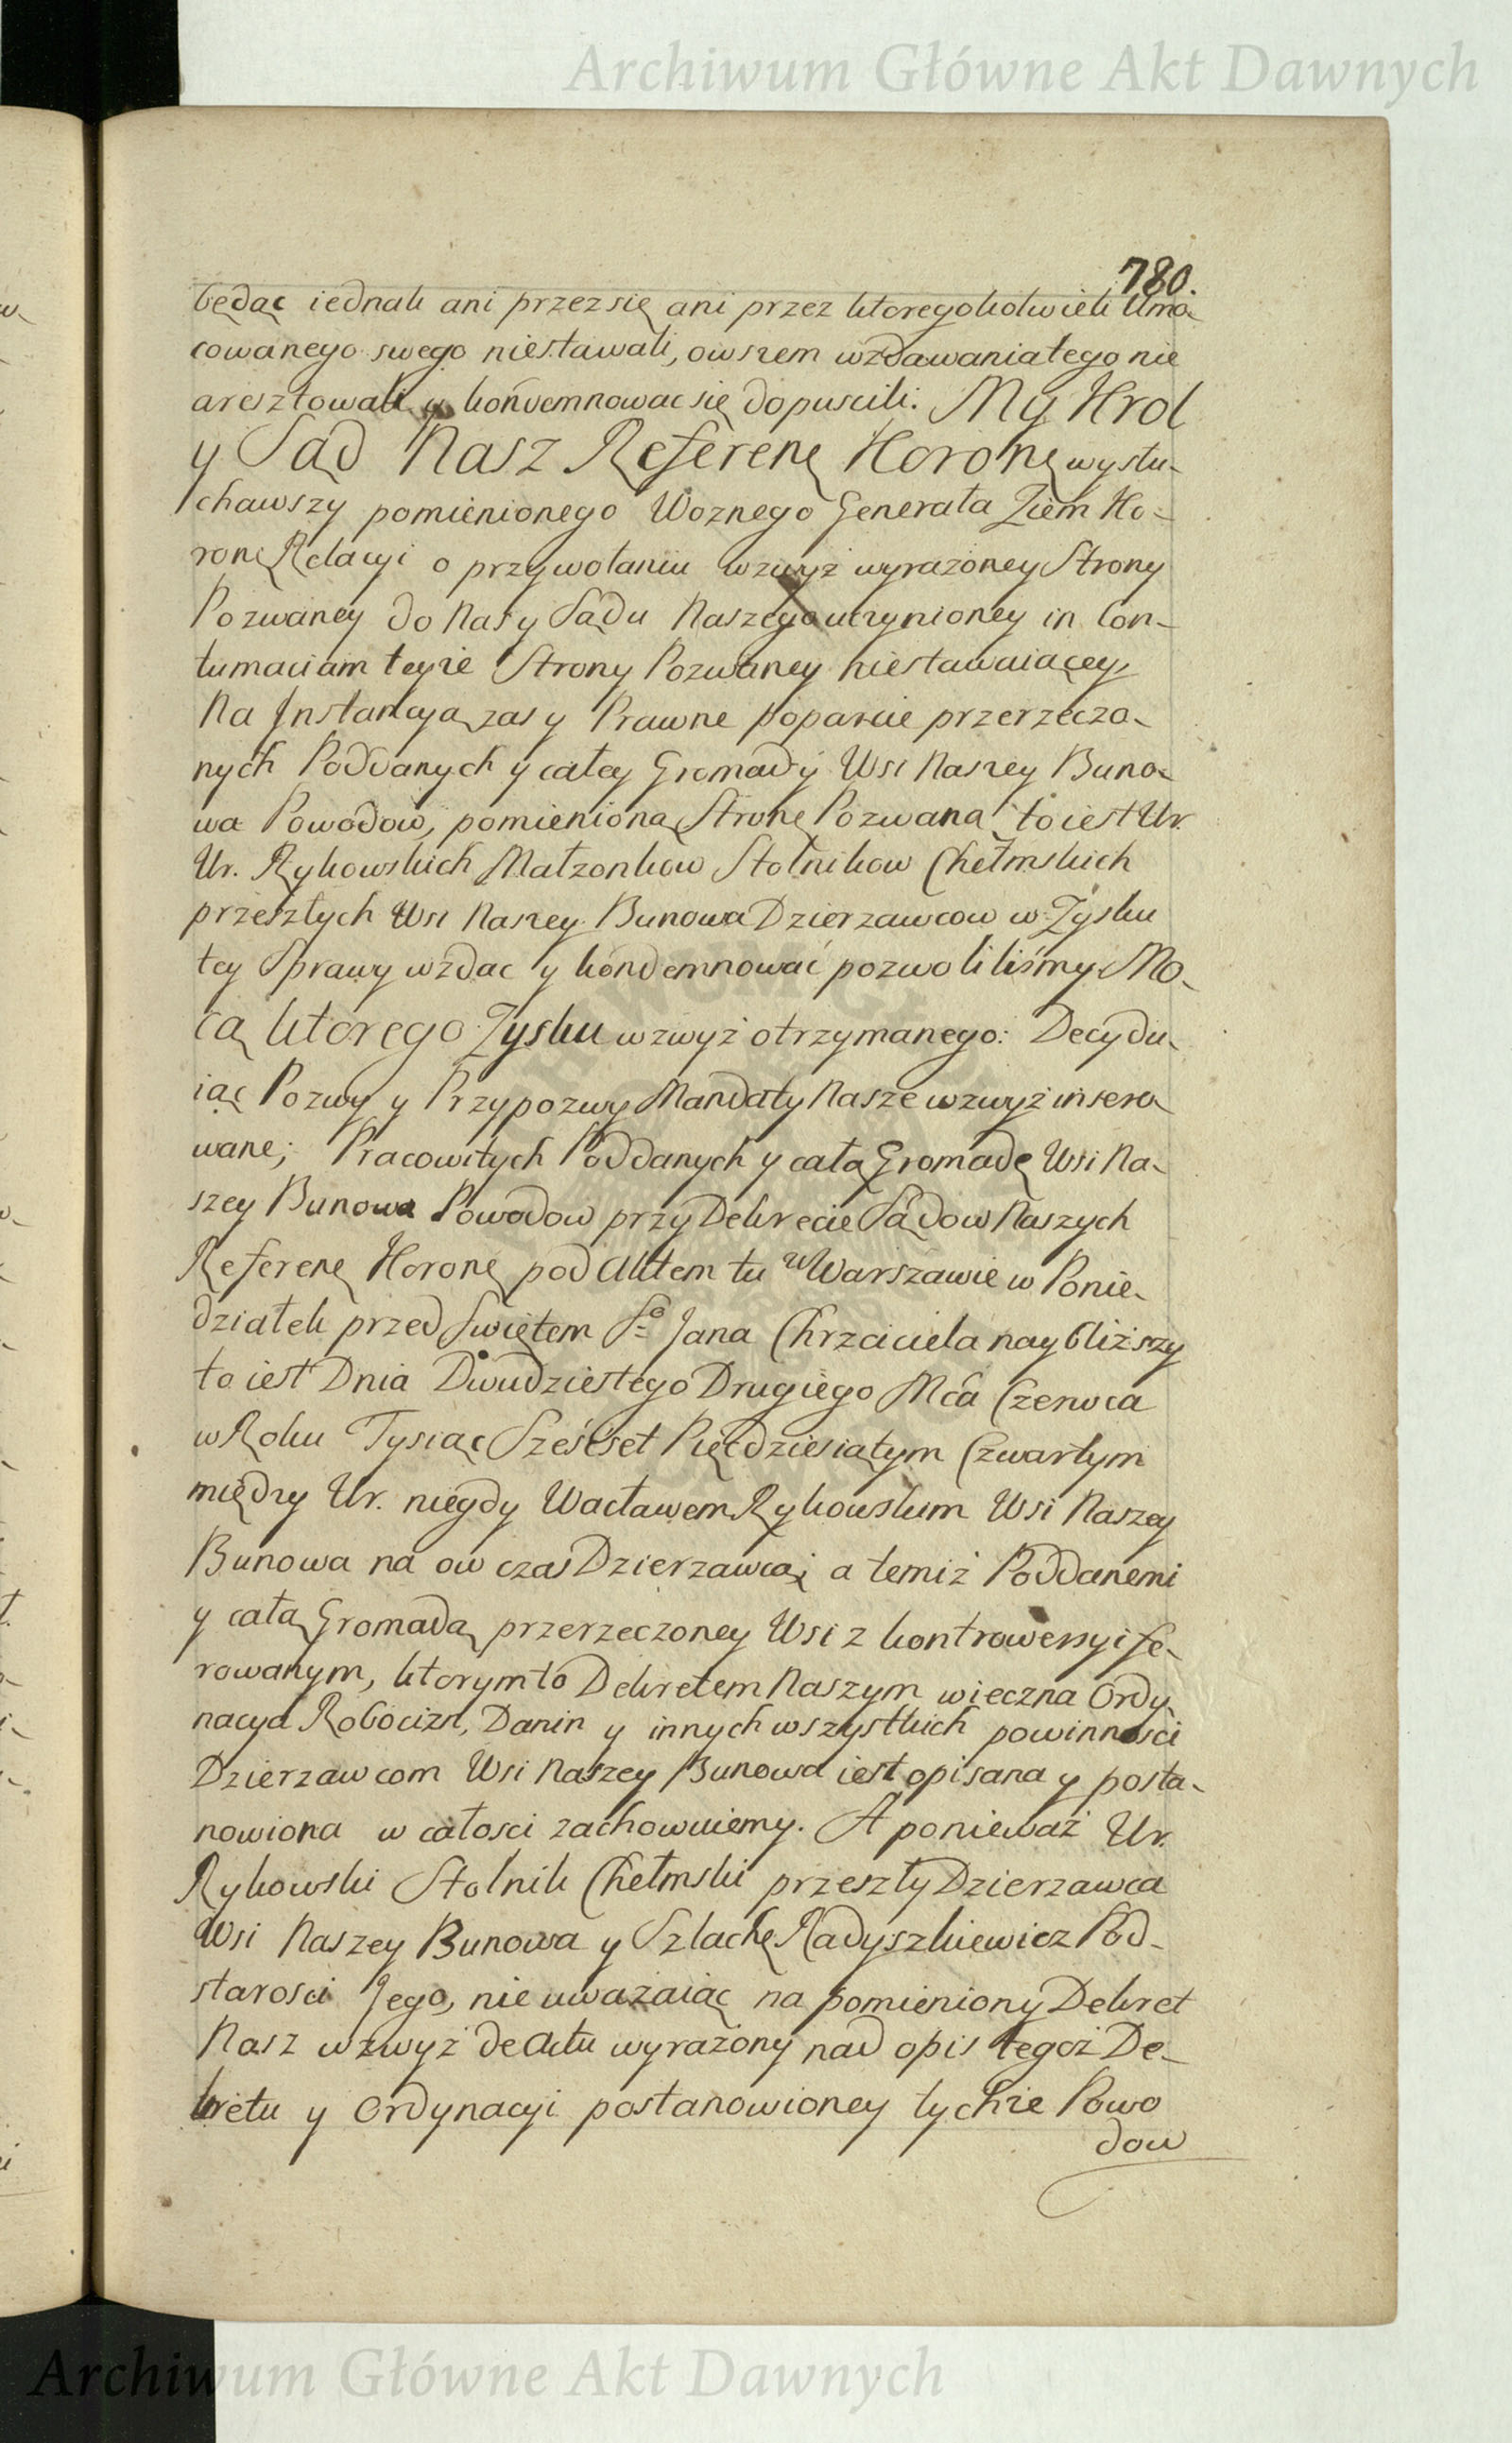 Archiwum Główne Akt Dawnych
780.
będąc iednak ani przez się ani przez ktoregokolwiek Umo-
cowanego swego niestawali, owszem wzdawania tego nie
aresztowali y kondemnowac się dopuscili. My Krol
y Sąd Nasz Referenę Koronę wysłu-
chawszy pomienionego Woznego Generała Ziem Ko-
ronę Relacyi o przywołaniu wzwyż wyrażoney Strony
Pozwaney do Nas y Sądu Naszego uczynioney in Con-
tumaciam teyże Strony Pozwaney niestawaiącey,
Na Jnstancyą zas y Prawne poparcie przerzeczo-
nych Poddanych y całey Gromady Wsi Naszey Buno-
wa Powodow, pomienioną Stronę Pozwaną to iest Ur.
Ur. Rykowskich Małzonkow Stolnikow Chełmskich
przeszłych Wsi Naszey Bunowa Dzierzawcow w Zysku
tey Sprawy wzdac y kondemnować pozwoliliśmy. Mo-
cą ktorego Zysku wzwyż otrzymanego: Decydu-
iąc Pozwy y Przypozwy Mandaty Nasze wzwyż insero-
wane; Pracowitych Poddanych y całą Gromadę Wsi Na-
szey Bunowa Powodow przy Dekrecie Sądow Naszych
Referenę Koronę pod Aktem tu w Warszawie w Ponie-
działek przed Swiętem So Jana Chrzciciela naybliższy
to iest Dnia Dwudziestego Drugiego Mca Czerwca
w Roku Tysiąc Sześcset Pięcdziesiątym Czwartym
między Ur. niegdy Wacławem Rykowskim Wsi Naszey
Bunowa na ow czas Dzierzawcą; a temiż Poddanemi
y całą Gromadą przerzeczoney Wsi z kontrowersyi fe-
rowanym, ktorym to Dekretem Naszym wieczna Ordy
nacya Robocizn, Danin y innych wszystkich powinnosci
Dzierzawcom Wsi Naszey Bunowa iest opisana y posta-
nowiona w całosci zachowuiemy. A ponieważ Ur.
Rykowski Stolnik Chełmski przeszły Dzierzawca
Wsi Naszey Bunowa y Szlachę Radyszkiewicz Pod-
starosci Jego, nie uważaiąc na pomieniony Dekret
Nasz wzwyż de Aktu wyrażony nad opis tegoż De-
kretu y Ordynacyi postanowioney tychże Powo
dow
Archiwum Główne Akt Dawnych